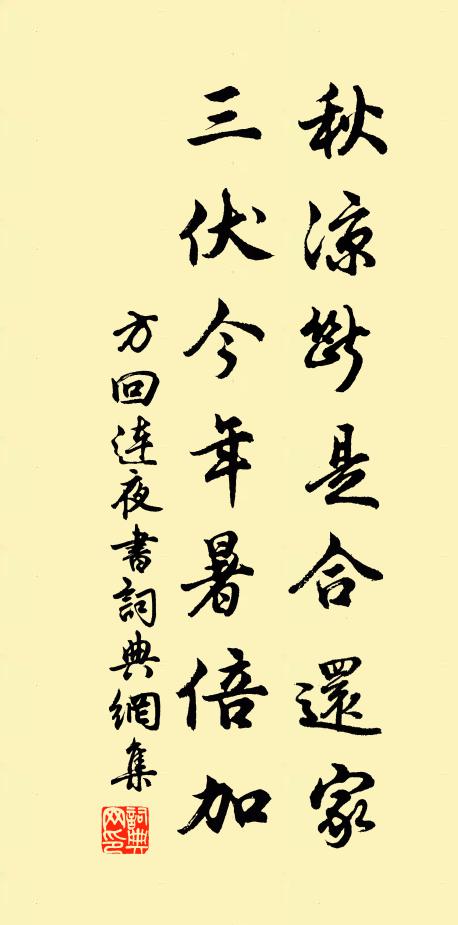 秋涼斷是合還家
三伏今年暑倍加
方回連夜書詞典網集
詞典網印